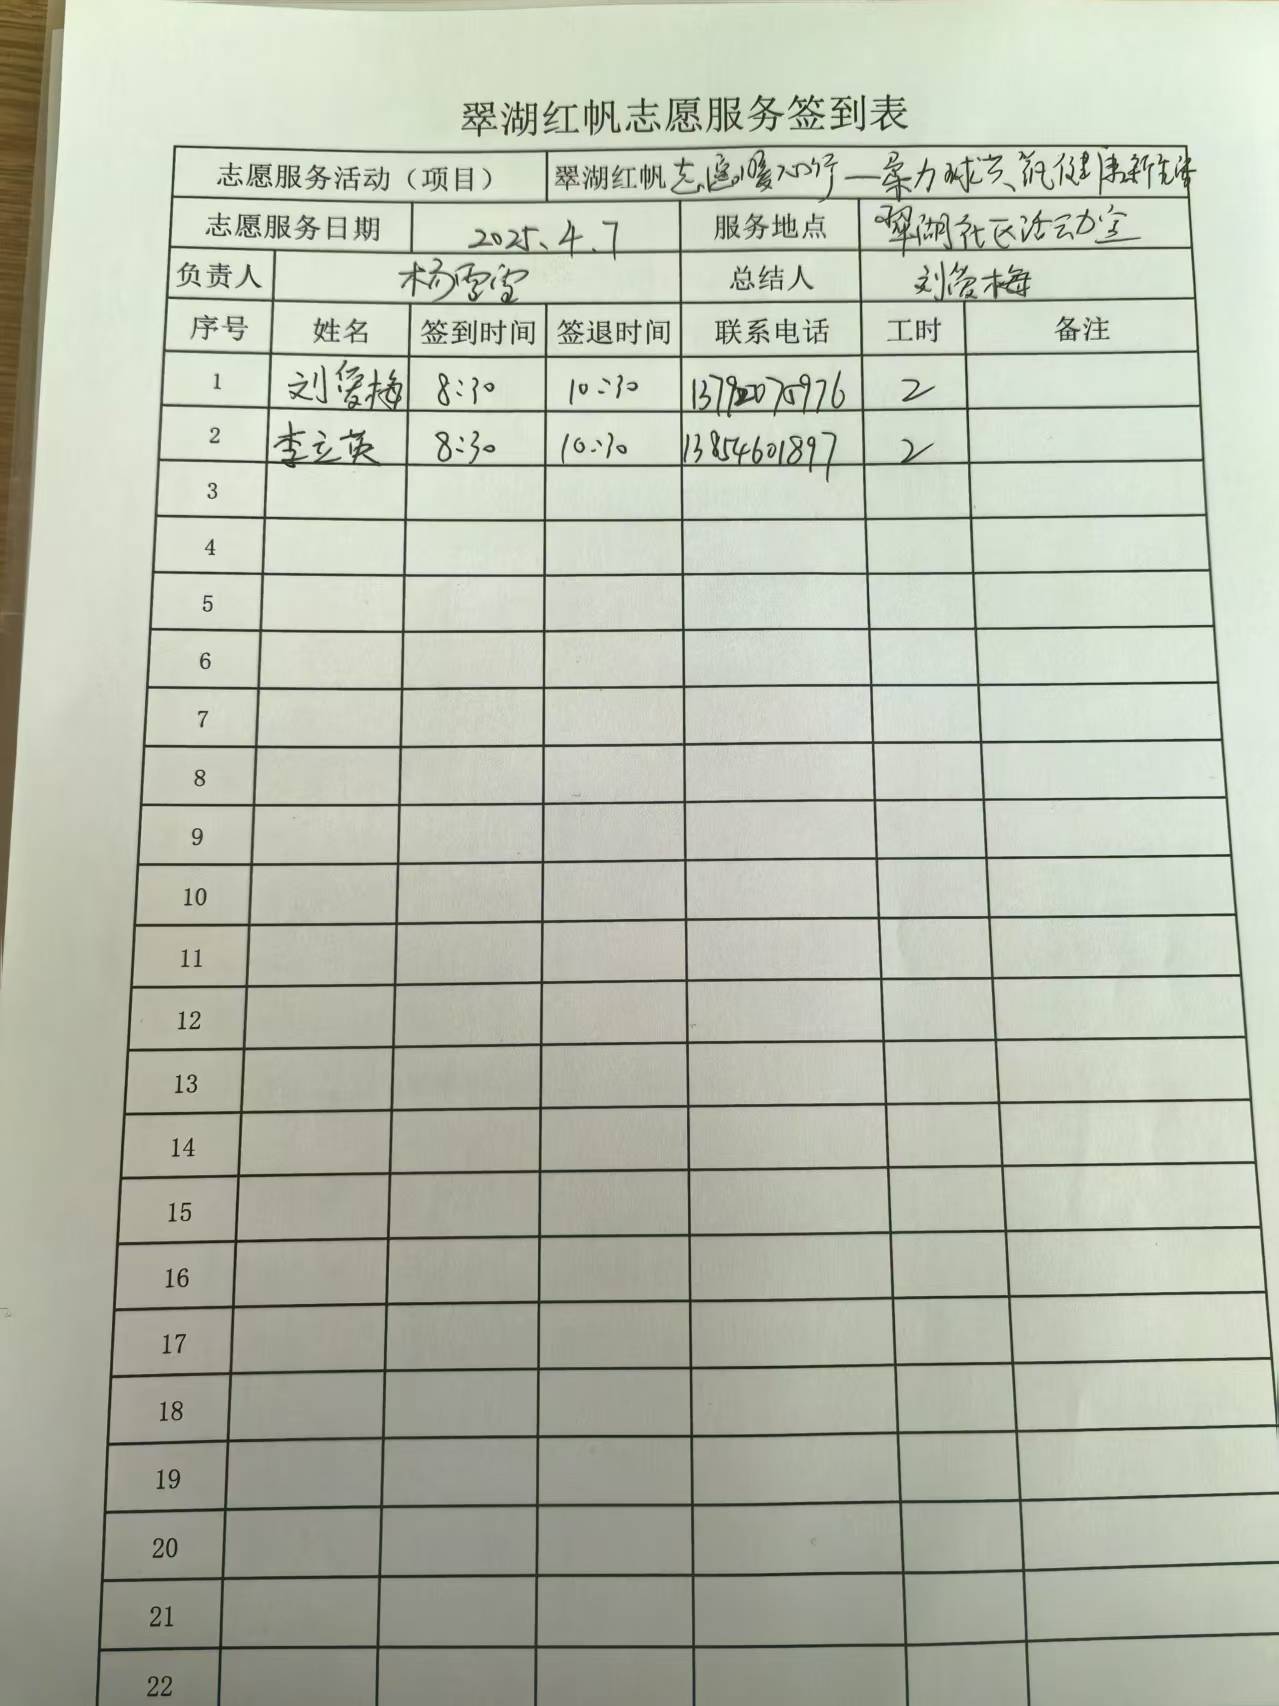 翠湖红帆志愿服务签到表
志愿服务活动（项目） 翠湖红帆志愿暖心行—柔力球共筑健康新生活
志愿服务日期 2025.4.7 服务地点 翠湖社区活动室
负责人 杨雪雪 总结人 刘爱梅
序号 姓名 签到时间 签退时间 联系电话 工时 备注
1 刘爱梅 8:30 10:30 13792075976 2
2 李立英 8:30 10:30 13854601897 2
3
4
5
6
7
8
9
10
11
12
13
14
15
16
17
18
19
20
21
22